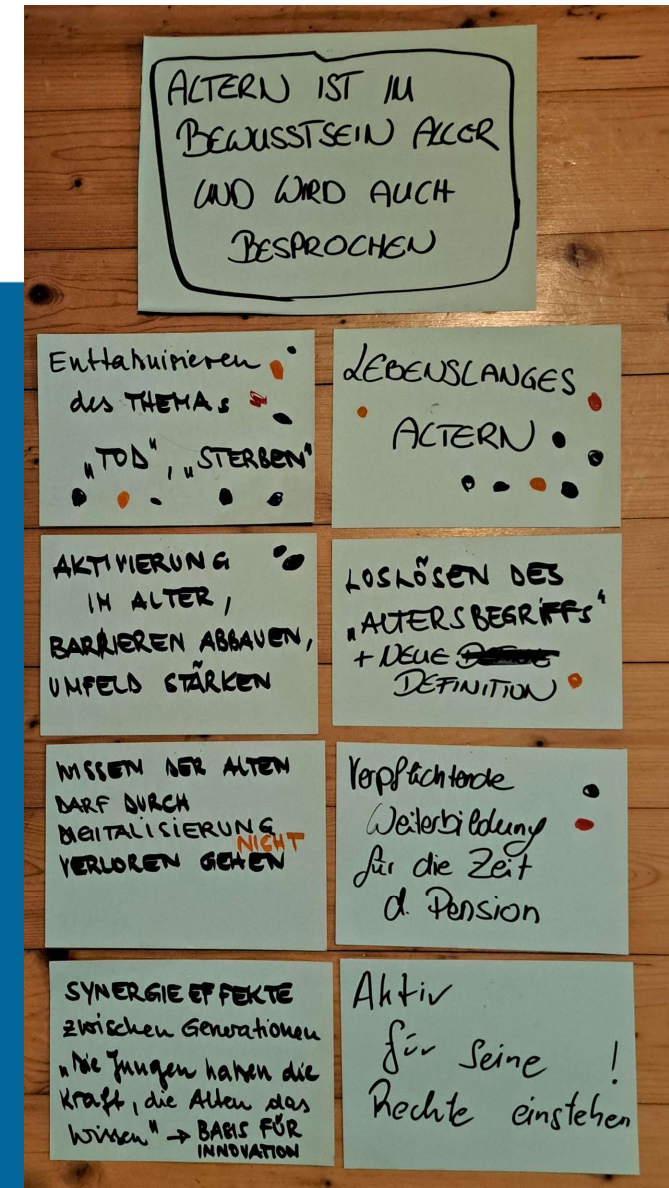 ALTERN IST IM
BEWUSSTSEIN ALLER
UND WIRD AUCH
BESPROCHEN
Enttabuisieren
des THEMAs
„TOD“, „STERBEN“
LEBENSLANGES
ALTERN
AKTIVIERUNG
IM ALTER,
BARRIEREN ABBAUEN,
UMFELD STÄRKEN
LOSLÖSEN DES
„ALTERSBEGRIFFS“
+ NEUE
DEFINITION
WISSEN DER ALTEN
DARF DURCH
DIGITALISIERUNG
NICHT
VERLOREN GEHEN
Verpflichtende
Weiterbildung
für die Zeit
d. Pension
SYNERGIEEFFEKTE
zwischen Generationen
„Die Jungen haben die
Kraft, die Alten das
Wissen“ → BASIS FÜR
INNOVATION
Aktiv
für seine
Rechte einstehen!